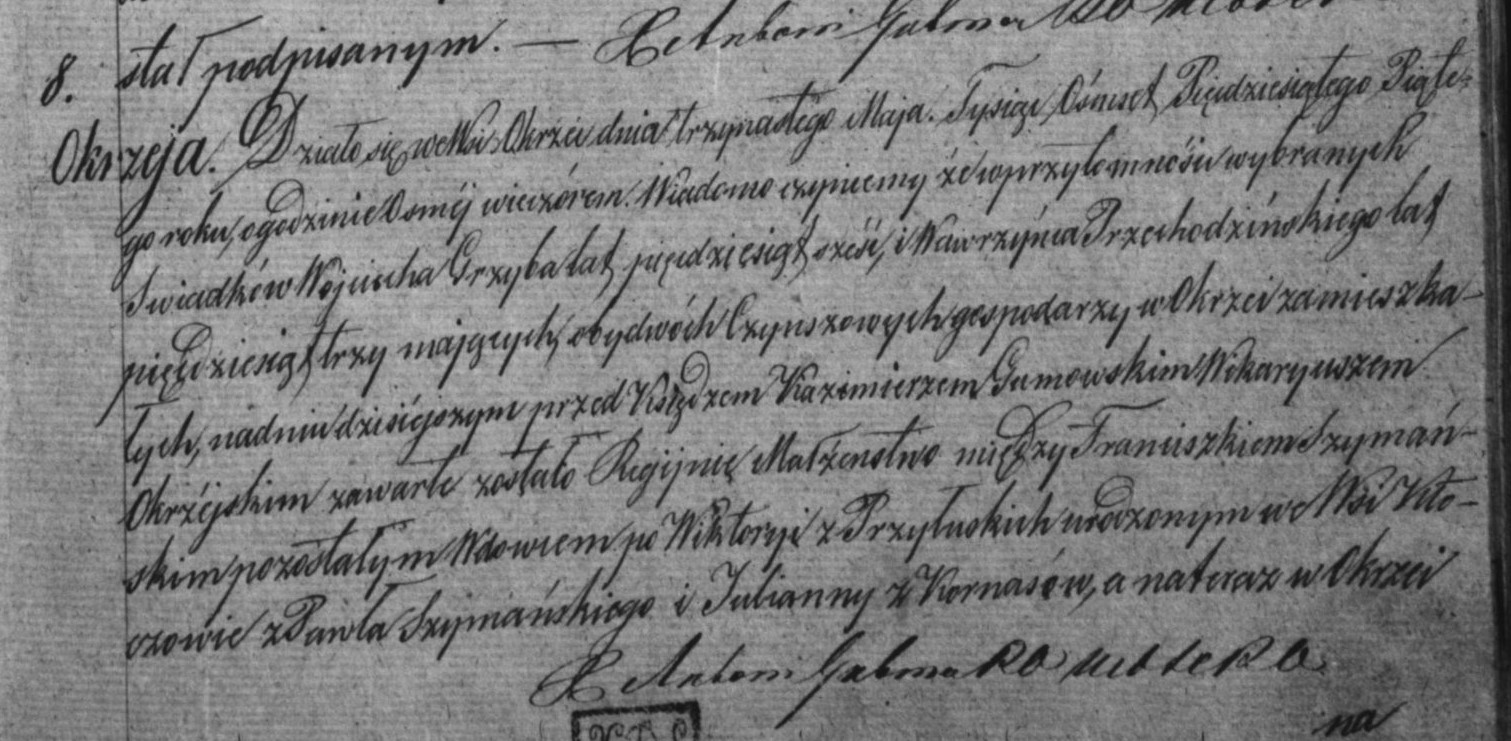 stał podpisanym. — X Antoni
8.
Okrzeja. Działo się we Wsi Okrzei dnia trzynastego Maja. Tysiąc Ośmset Pięćdziesiątego Piąte-
go roku, o godzinie Osméj wieczórem. Wiadomo czyniemy że w przytomności wybranych
Swiadków Wojciecha Grzyba lat pięcdziesiąt sześć, i Wawrzyńca Przechodzińskiego lat
pięćdziesiąt trzy mających, obydwóch Czynszowych gospodarzy w Okrzei zamieszka-
łych, na dniu dzisiejszym przed Księdzem Kazimierzem Gumowskim Wikaryuszem
Okrzéjskim zawarte zostało Regijnię Małżenstwo między Franciszkiem Szymań-
skim pozostałym Wdowcem po Wiktoryi z Przyłuskich urodzonym we Wsi Kło-
czowie z Pawła Szymańskiego i Julianny z Kornasów, a na teraz w Okrzei
X Antoni
na